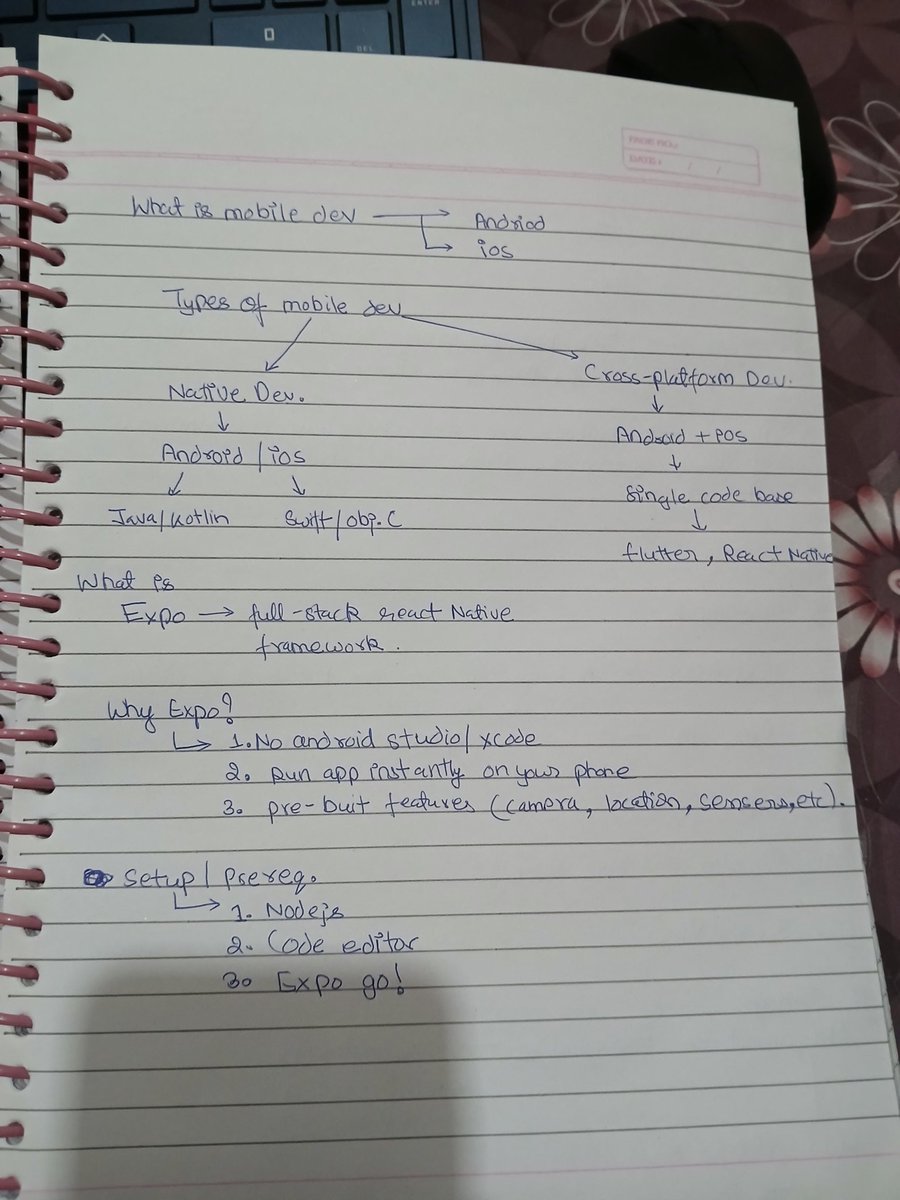 ENTER
DEL
PAGE NO.:
DATE: / /
What is mobile dev → Andriod
↳ ios
Types of mobile dev
Native Dev.
↓
Android / ios
↙ ↓
Java/Kotlin Swift/obj.C
Cross-platform Dev.
↓
Android + ios
↓
Single code base
↓
flutter, React Native
What is
Expo → full-stack react Native
framework.
Why Expo?
↳ 1. No android studio/xcode
2. Run app instantly on your phone
3. pre-buit features (camera, location, sensers, etc).
Setup / Prereq.
↳ 1. Nodejs
2. Code editor
3. Expo go!